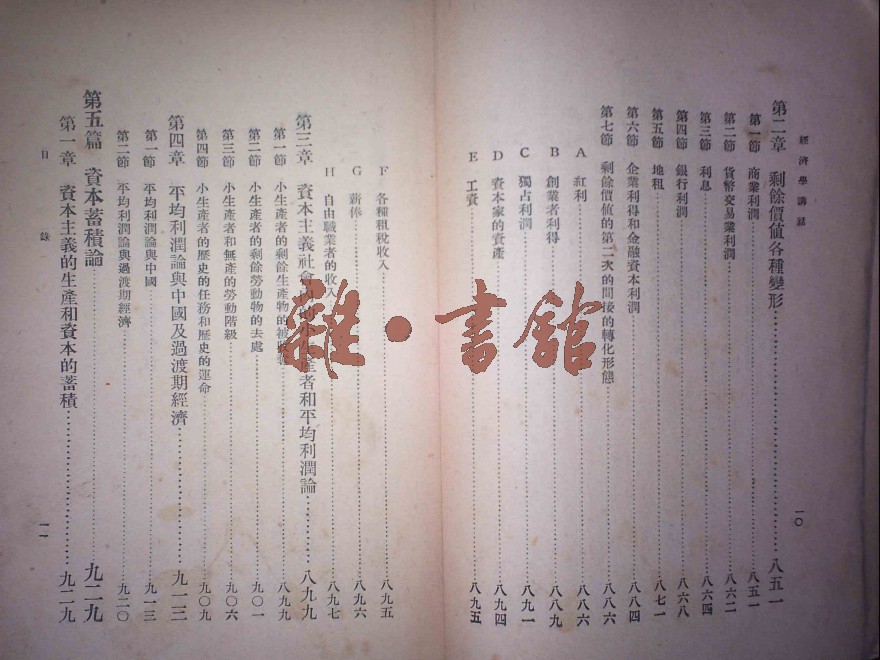 經濟學講話
一〇
第二章 剩餘價值各種變形⋯⋯八五一
第一節 商業利潤⋯⋯八五一
第二節 貨幣交易業利潤⋯⋯八六二
第三節 利息⋯⋯八六四
第四節 銀行利潤⋯⋯八六八
第五節 地租⋯⋯八七一
第六節 企業利得和金融資本利潤⋯⋯八八四
第七節 剩餘價值的第二次的間接的轉化形態⋯⋯八八六
A 紅利⋯⋯八八六
B 創業者利得⋯⋯八八九
C 獨占利潤⋯⋯八九一
D 資本家的資產⋯⋯八九四
E 工資⋯⋯八九五
F 各種租稅收入⋯⋯八九五
G 薪俸⋯⋯八九六
H 自由職業者的收入⋯⋯八九七
第三章 資本主義社會內的小生產者和平均利潤論⋯⋯八九九
第一節 小生產者的剩餘生產物的被⋯⋯八九九
第二節 小生產者的剩餘勞動物的去處⋯⋯九〇一
第三節 小生產者和無產的勞動階級⋯⋯九〇六
第四節 小生產者的歷史的任務和歷史的運命⋯⋯九〇九
第四章 平均利潤論與中國及過渡期經濟⋯⋯九一三
第一節 平均利潤論與中國⋯⋯九一三
第二節 平均利潤論與過渡期經濟⋯⋯九二〇
第五篇 資本蓄積論⋯⋯九二九
第一章 資本主義的生產和資本的蓄積⋯⋯九二九
目錄
一一
雜·書館